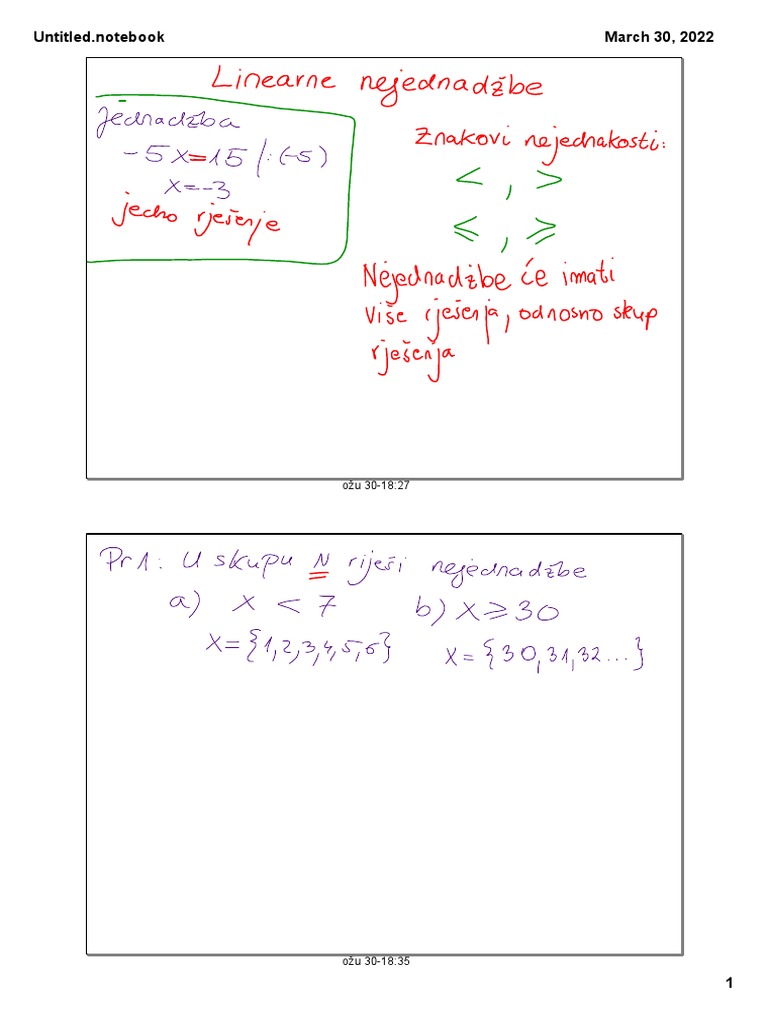 Untitled.notebook
March 30, 2022
Linearne nejednadžbe
Jednadžba
-5x=15 /:(-5)
x=-3
jedno rješenje
Znakovi nejednakosti:
< , >
≤ , ≥
Nejednadžbe će imati
više rješenja, odnosno skup
rješenja
ožu 30-18:27
Pr1: U skupu N riješi nejednadžbe
a) x < 7 b) x ≥ 30
x={1,2,3,4,5,6} x={30,31,32...}
ožu 30-18:35
1